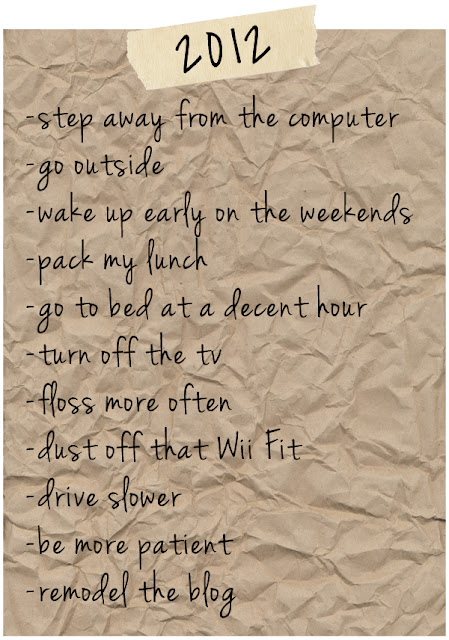 2012
-step away from the computer
-go outside
-wake up early on the weekends
-pack my lunch
-go to bed at a decent hour
-turn off the tv
-floss more often
-dust off that Wii Fit
-drive slower
-be more patient
-remodel the blog